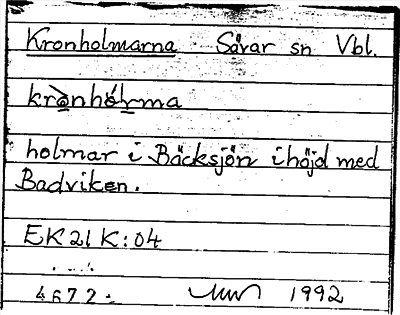 Kronholmarna Sävar sn Vbl.
krònhólma
holmar i Bäcksjön i höjd med
Badviken.
EK 21 K:04
4672 1992